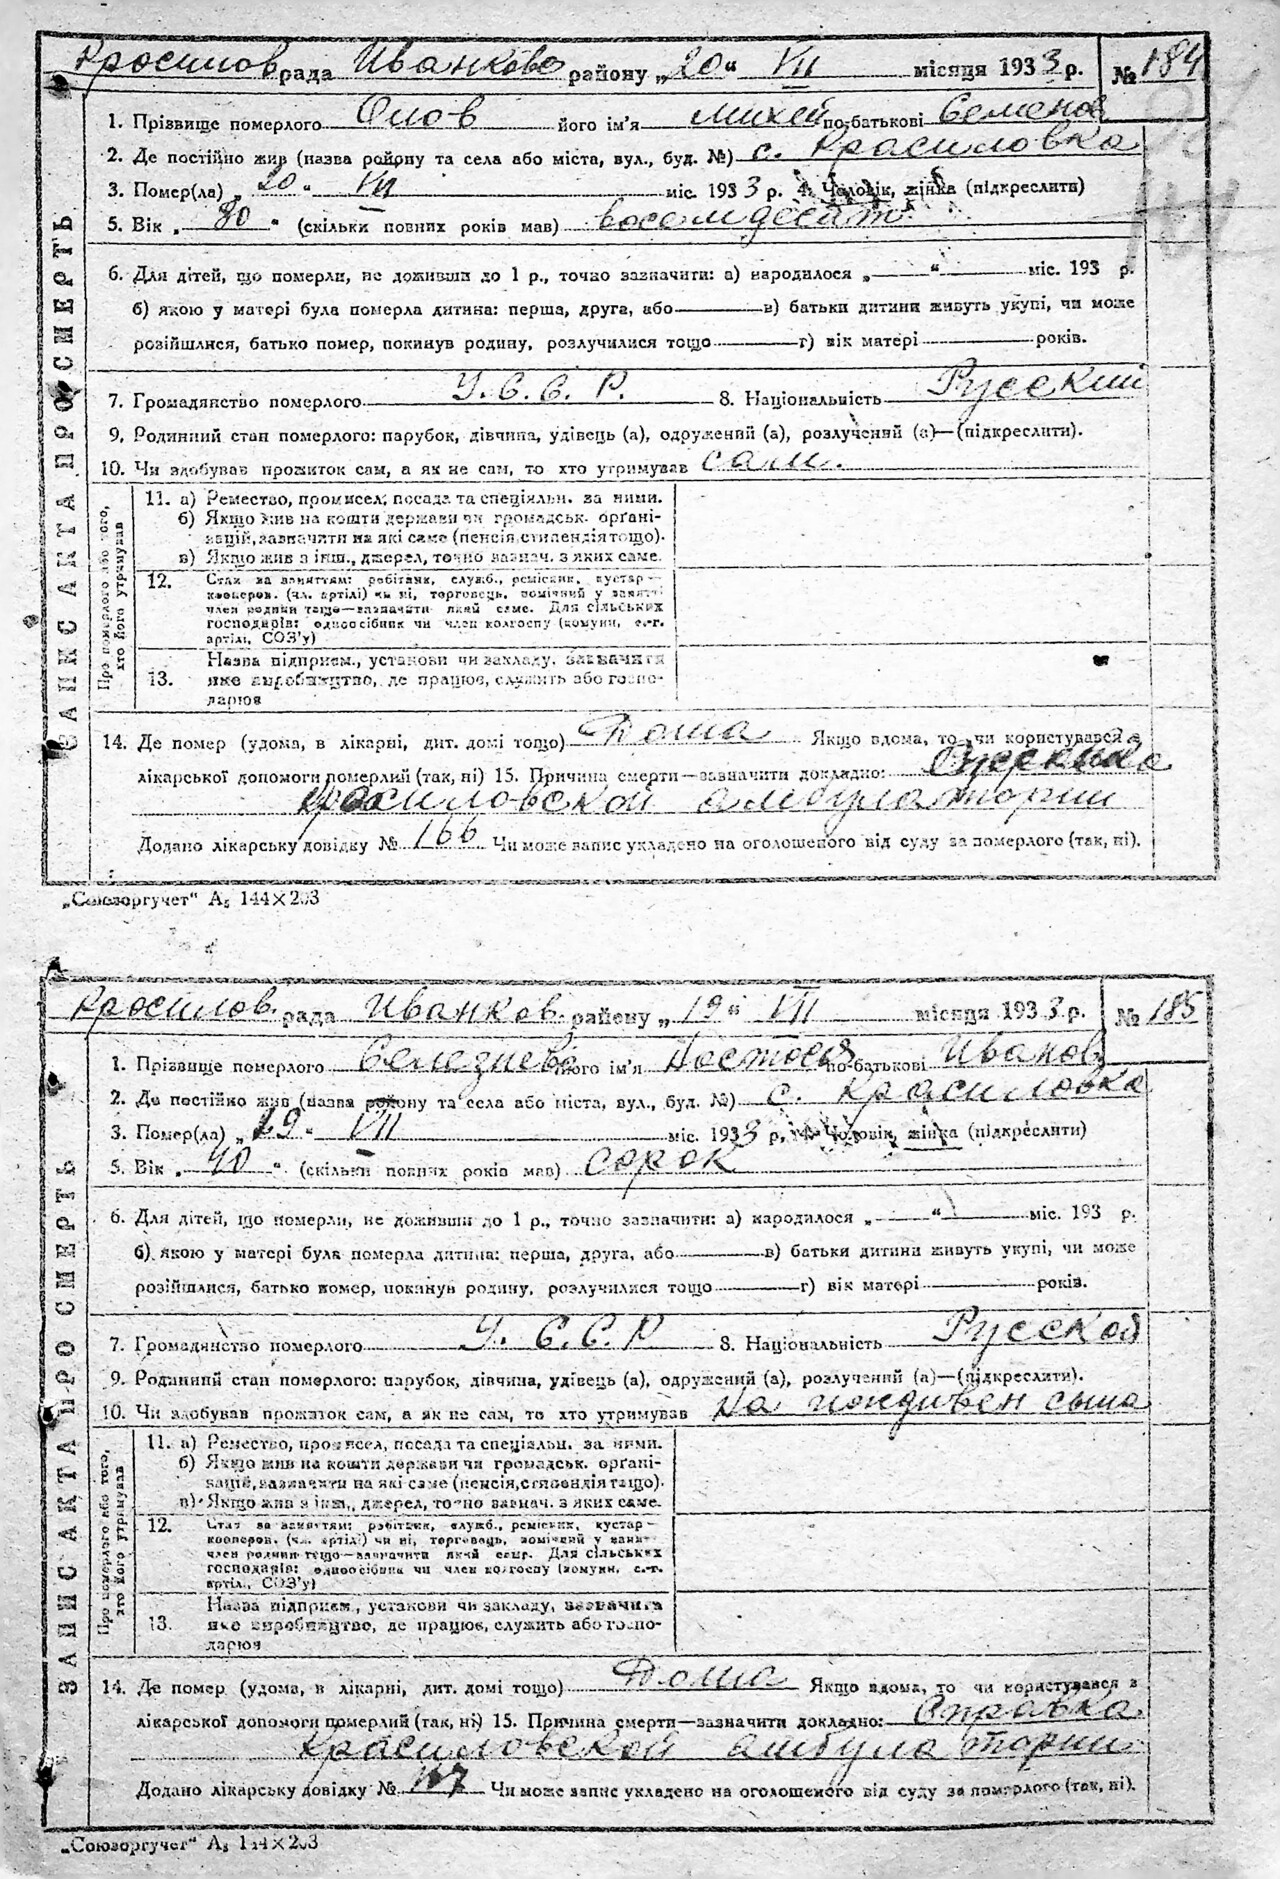 Красилов рада Иванково району „20“ VII місяця 1933 р. № 184
1. Прізвище померлого його ім'я Михей по-батькові Семенов
2. Де постійно жив (назва району та села або міста, вул., буд. №) с. Красиловка
3. Помер(ла) „20“ VII міс. 1933 р. 4. Чоловік, жінка (підкреслити)
5. Вік „80“ (скільки повних років мав) восемдесат
6. Для дітей, що померли, не доживши до 1 р., точно зазначити: а) народилося „ “ міс. 193 р.
б) якою у матері була померла дитина: перша, друга, або в) батьки дитини живуть укупі, чи може
розійшлися, батько помер, покинув родину, розлучилися тощо г) вік матері років.
7. Громадянство померлого У.С.С.Р. 8. Національність Русский
9. Родинний стан померлого: парубок, дівчина, удівець (а), одружений (а), розлучений (а)—(підкреслити).
10. Чи здобував прожиток сам, а як не сам, то хто утримував сам.
ЗАПИС АКТА ПРО СМЕРТЬ
Про померлого або того, хто його утримував
11. а) Ремество, промисел, посада та спеціяльн. за ними.
б) Якщо жив на кошти держави чи громадськ. орґані-
зацій, зазначити на які саме (пенсія, стипендія тощо).
в) Якщо жив з інш., джерел, точно зазнач. з яких саме.
12. Стан за заняттям: робітник, служб., ремісник, кустар—
кооперов. (чл. артілі) чи ні, торговець, помічний у занятті
член родини тощо—зазначити який саме. Для сільських
господарів: одноосібник чи член колгоспу (комуни, с.-г.
артілі, СОЗ'у)
13. Назва підприєм., установи чи закладу, зазначити
яке виробництво, де працює, служить або госпо-
дарює
14. Де помер (удома, в лікарні, дит. домі тощо) Дома Якщо вдома, то чи користувався з
лікарської допомоги померлий (так, ні) 15. Причина смерти—зазначити докладно:
Красиловской амбулатории
Додано лікарську довідку № 166 Чи може запис укладено на оголошеного від суду за померлого (так, ні).
„Союзоргучет“ А₅ 144×203
Красилов. рада Иванков. району „19“ VII місяця 1933 р. № 185
1. Прізвище померлого Селезнева його ім'я по-батькові Иванов
2. Де постійно жив (назва району та села або міста, вул., буд. №) с. Красиловка
3. Помер(ла) „19“ VII міс. 1933 р. 4. Чоловік, жінка (підкреслити)
5. Вік „40“ (скільки повних років мав) сорок
6. Для дітей, що померли, не доживши до 1 р., точно зазначити: а) народилося „ “ міс. 193 р.
б) якою у матері була померла дитина: перша, друга, або в) батьки дитини живуть укупі, чи може
розійшлися, батько помер, покинув родину, розлучилися тощо г) вік матері років.
7. Громадянство померлого У.С.С.Р 8. Національність Русской
9. Родинний стан померлого: парубок, дівчина, удівець (а), одружений (а), розлучений (а)—(підкреслити).
10. Чи здобував прожиток сам, а як не сам, то хто утримував На иждивен сына
ЗАПИС АКТА ПРО СМЕРТЬ
Про померлого або того, хто його утримував
11. а) Ремество, промисел, посада та спеціяльн. за ними.
б) Якщо жив на кошти держави чи громадськ. орґані-
зацій, зазначити на які саме (пенсія, стипендія тощо).
в) Якщо жив з інш., джерел, точно зазнач. з яких саме.
12. Стан за заняттям: робітник, служб., ремісник, кустар—
кооперов. (чл. артілі) чи ні, торговець, помічний у занятті
член родини тощо—зазначити який саме. Для сільських
господарів: одноосібник чи член колгоспу (комуни, с.-г.
артілі, СОЗ'у)
13. Назва підприєм., установи чи закладу, зазначити
яке виробництво, де працює, служить або госпо-
дарює
14. Де помер (удома, в лікарні, дит. домі тощо) Дома Якщо вдома, то чи користувався з
лікарської допомоги померлий (так, ні) 15. Причина смерти—зазначити докладно: Справка
Красиловской амбулатории
Додано лікарську довідку № Чи може запис укладено на оголошеного від суду за померлого (так, ні).
„Союзоргучет“ А₅ 144×203